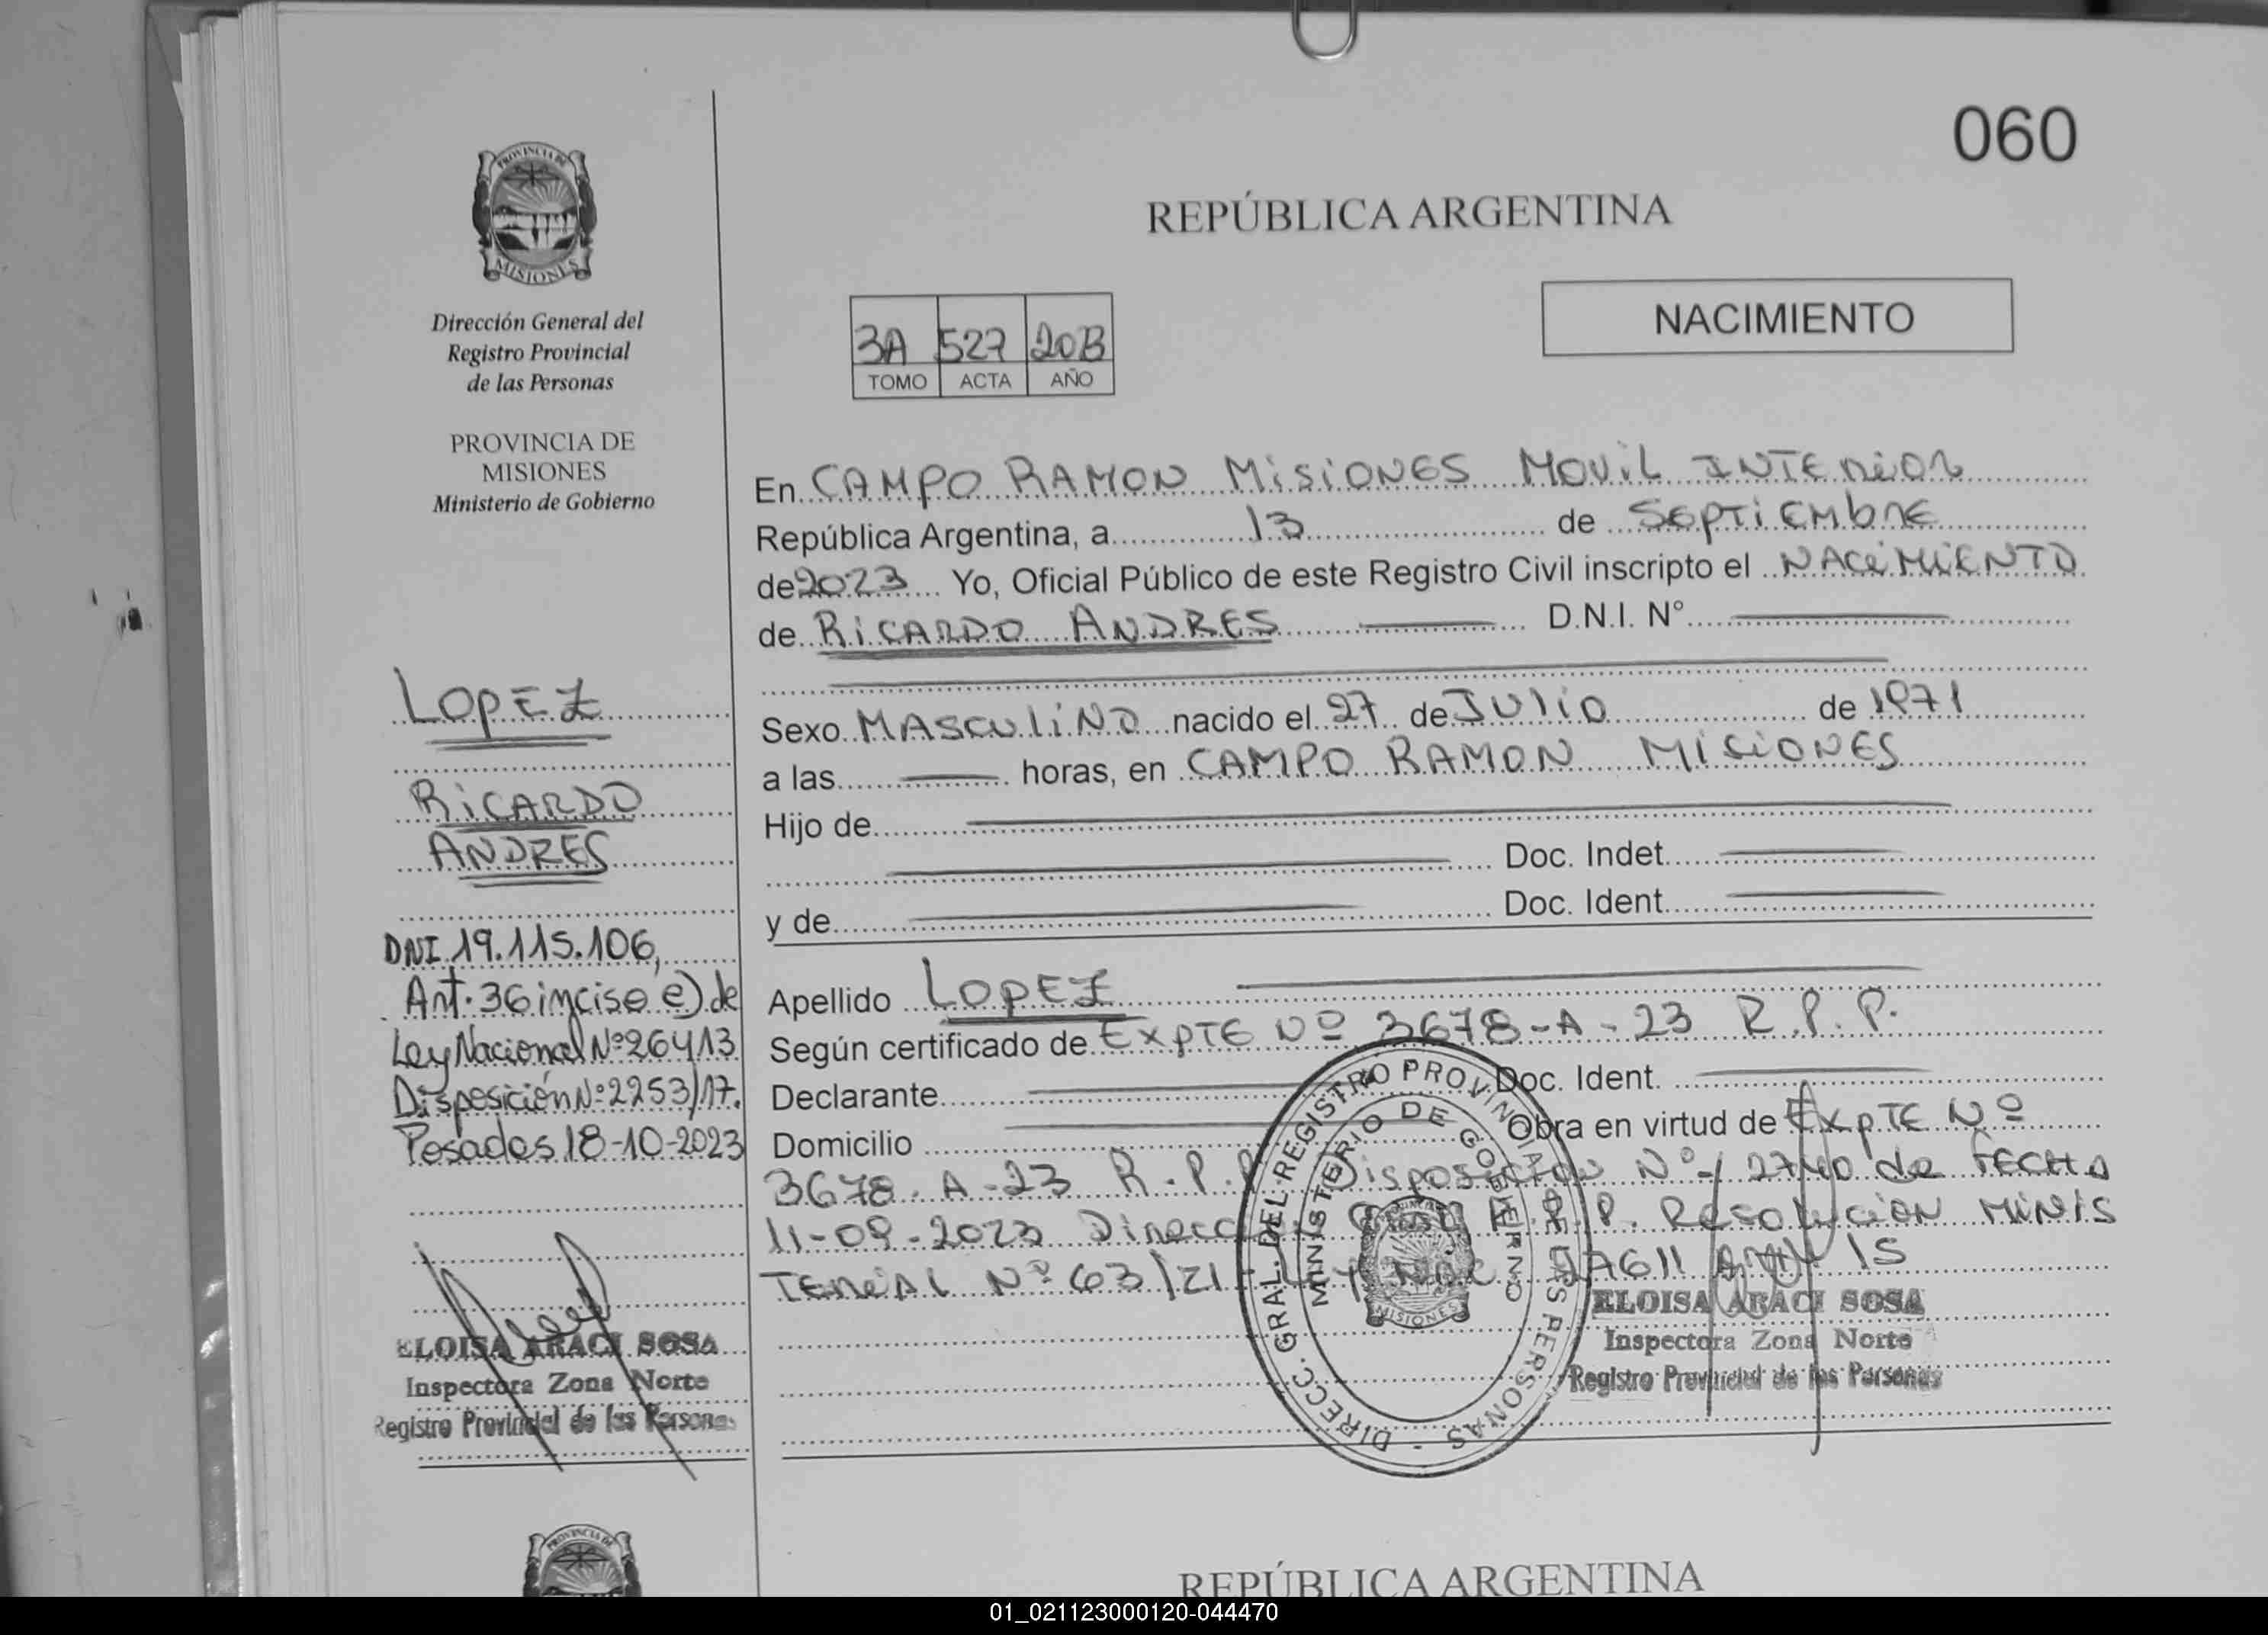 060
PROVINCIA DE
MISIONES
Dirección General del
Registro Provincial
de las Personas
PROVINCIA DE
MISIONES
Ministerio de Gobierno
REPÚBLICA ARGENTINA
NACIMIENTO
3A 527 2023
TOMO ACTA AÑO
En CAMPO RAMON MISIONES MOVIL INTERIOR
República Argentina, a 13 de SEPTIEMbRE
de 2023 Yo, Oficial Público de este Registro Civil inscripto el NACIMIENTO
de RICARDO ANDRES D.N.I. N°
Sexo MASCULINO nacido el 27 de JULIO de 1971
a las horas, en CAMPO RAMON MISIONES
Hijo de
Doc. Indet.
y de Doc. Ident.
Apellido LOPEZ
Según certificado de EXPTE Nº 3678-A-23 R.P.P.
Declarante Doc. Ident.
Domicilio Obra en virtud de EXPTE Nº
3678-A-23 R.P.P. Disposicion Nº 2740 de FECHA
11-09-2023 Direcc. Gral R.P.P. Resolucion MINIS
TERIAL Nº 63/21 Ley Nac 27611 Art 15
ELOISA ARACI SOSA
Inspectora Zona Norte
Registro Provincial de las Personas
DIRECC. GRAL. DEL REGISTRO PROVINCIAL DE LAS PERSONAS -
MINISTERIO DE GOBIERNO
MISIONES
LOPEZ
RICARDO
ANDRES
DNI 19.115.106,
Art. 36 inciso e) de
Ley Nacional Nº 26413
Disposición Nº 2253/17.
Posadas 18-10-2023
ELOISA ARACI SOSA
Inspectora Zona Norte
Registro Provincial de las Personas
PROVINCIA DE
REPÚBLICA ARGENTINA
01_021123000120-044470